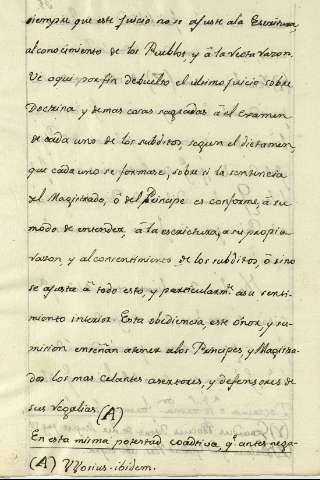 siempre que este juicio no se ajuste ala Escritura,
al conocimiento de los Pueblos, y â la recta razon.
Ve aqui por fin debuelto el ultimo juicio sobre
Doctrina y demas cosas sagradas â el examen
de cada uno de los subditos, segun el dictamen,
que cada uno se formase, sobre si la sentencia
del Magistrado, ô del Principe es conforme, â su
modo de entender, â la escriptura, a su propia
razon, y al consentimiento de los subditos, ô sino
se ajusta â todo esto, y particularm.te a su senti-
miento interior. Esta obediencia, este ônor, y su-
mision enseñan atener alos Principes, y Magistra-
dos los mas celantes asertores, y defensores de
sus regalias. (A)
En esta misma potestad coactiva, q.e antes nega-
(A) Worius ibidem.